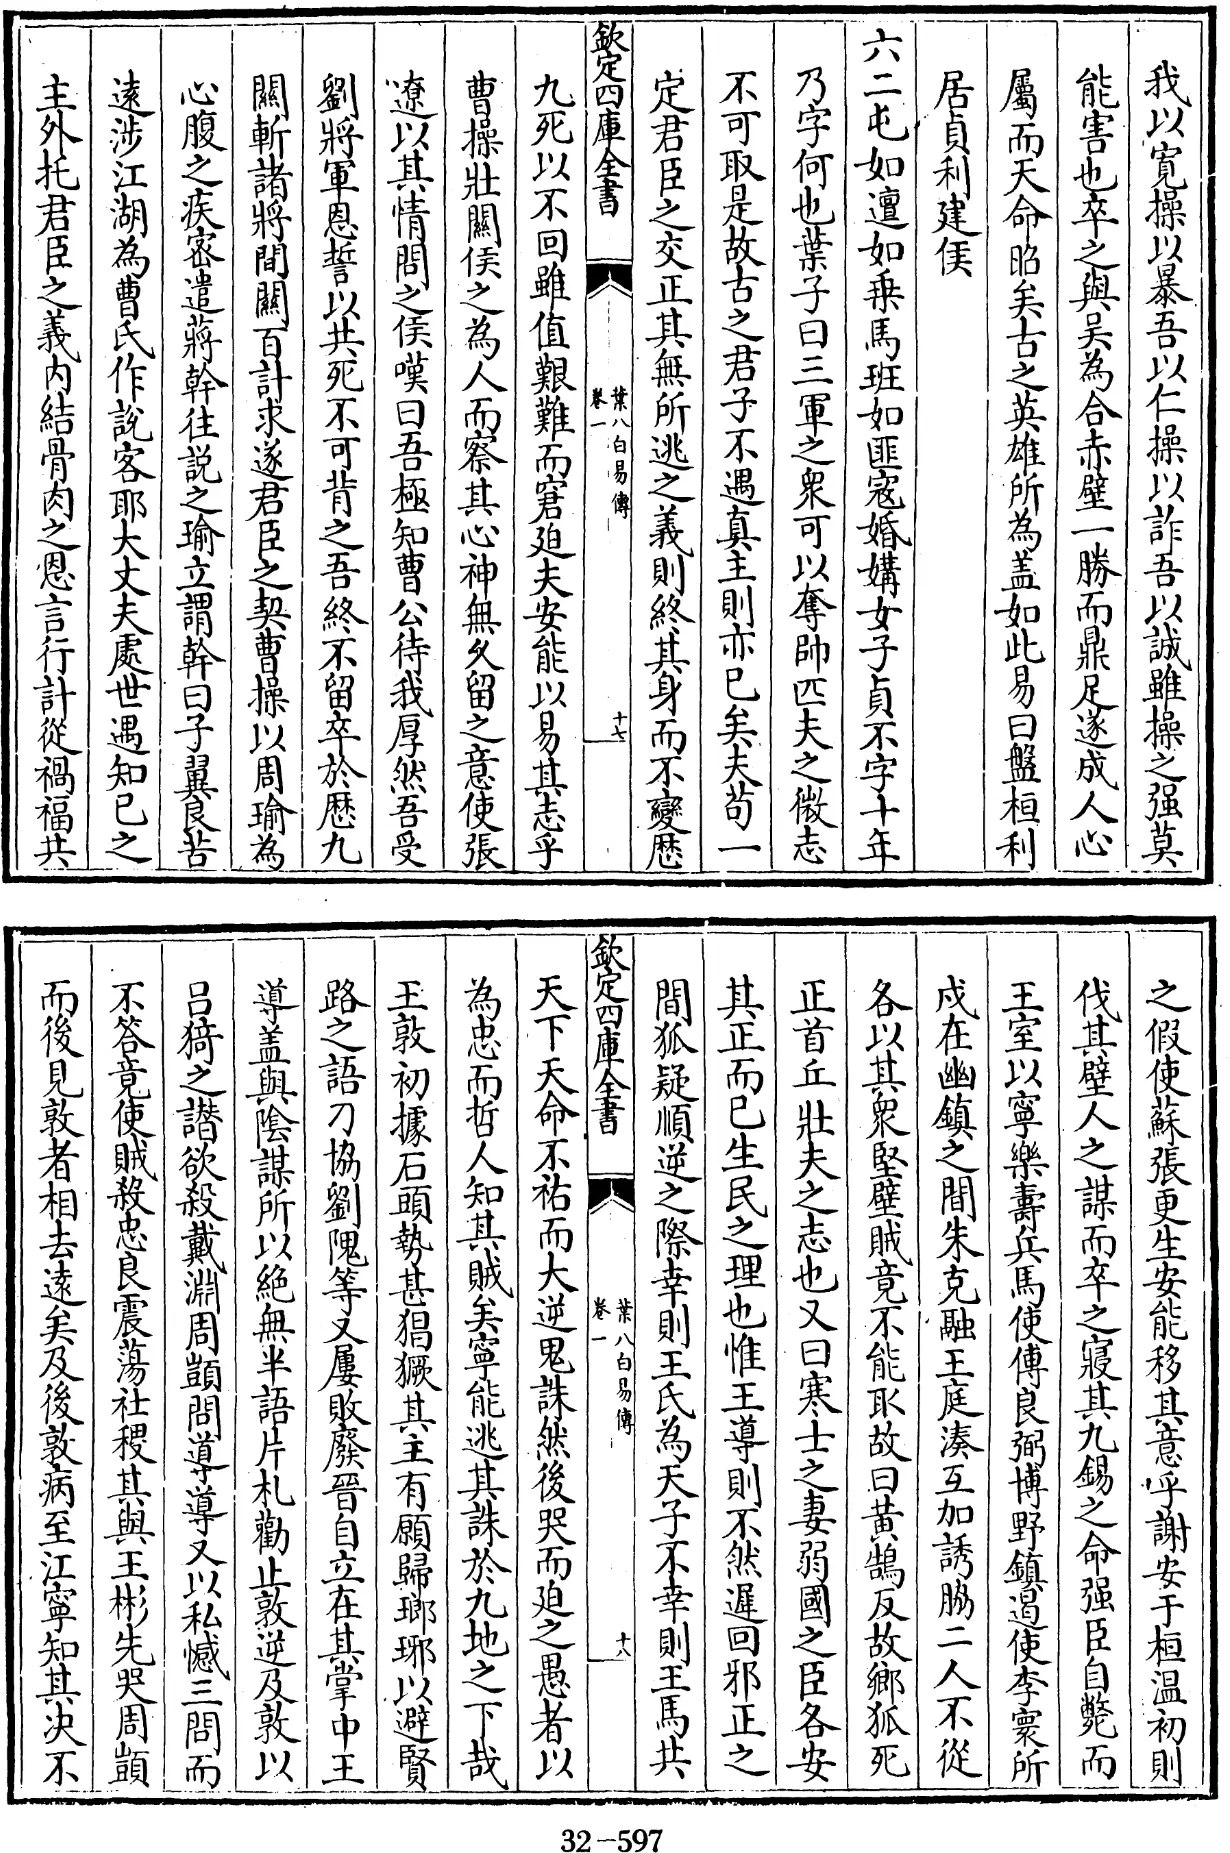 我以寛操以暴吾以仁操以詐吾以誠雖操之强莫
能害也卒之與吴為合赤壁一勝而鼎足遂成人心
屬而天命昭矣古之英雄所為盖如此易曰盤桓利
居貞利建侯
六二屯如邅如乗馬班如匪寇婚媾女子貞不字十年
乃字何也葉子曰三軍之衆可以奪帥匹夫之微志
不可取是故古之君子不遇真主則亦已矣夫苟一
定君臣之交正其無所逃之義則終其身而不變歴
欽定四庫全書
葉八白易傳
卷一
十七
九死以不回雖值艱難而窘迫夫安能以易其志乎
曹操壯關侯之為人而察其心神無久留之意使張
遼以其情問之侯嘆曰吾極知曹公待我厚然吾受
劉將軍恩誓以共死不可背之吾終不留卒於歴九
關斬諸將間關百計求遂君臣之契曹操以周瑜為
心腹之疾密遣蔣幹往説之瑜立謂幹曰子翼良苦
遠涉江湖為曹氏作說客耶大丈夫處世遇知己之
主外托君臣之義内結骨肉之恩言行計從禍福共
之假使蘇張更生安能移其意乎謝安于桓温初則
伐其壁人之謀而卒之寢其九錫之命强臣自斃而
王室以寧樂壽兵馬使傅良弼博野鎮遏使李寰所
戍在幽鎮之間朱克融王庭湊互加誘脇二人不從
各以其衆堅壁賊竟不能取故曰黄鵠反故鄉狐死
正首丘壯夫之志也又曰寒士之妻弱國之臣各安
其正而已生民之理也惟王導則不然遲回邪正之
間狐疑順逆之際幸則王氏為天子不幸則王馬共
欽定四庫全書
葉八白易傳
卷一
十八
天下天命不祐而大逆鬼誅然後哭而迫之愚者以
為忠而哲人知其賊矣寧能逃其誅於九地之下哉
王敦初據石頭勢甚猖獗其主有願歸瑯琊以避賢
路之語刀協劉隗等又屢敗廢晉自立在其掌中王
導盖與陰謀所以絶無半語片札勸止敦逆及敦以
吕猗之譖欲殺戴淵周顗問導導又以私憾三問而
不答竟使賊殺忠良震蕩社稷其與王彬先哭周顗
而後見敦者相去遠矣及後敦病至江寧知其决不
32-597